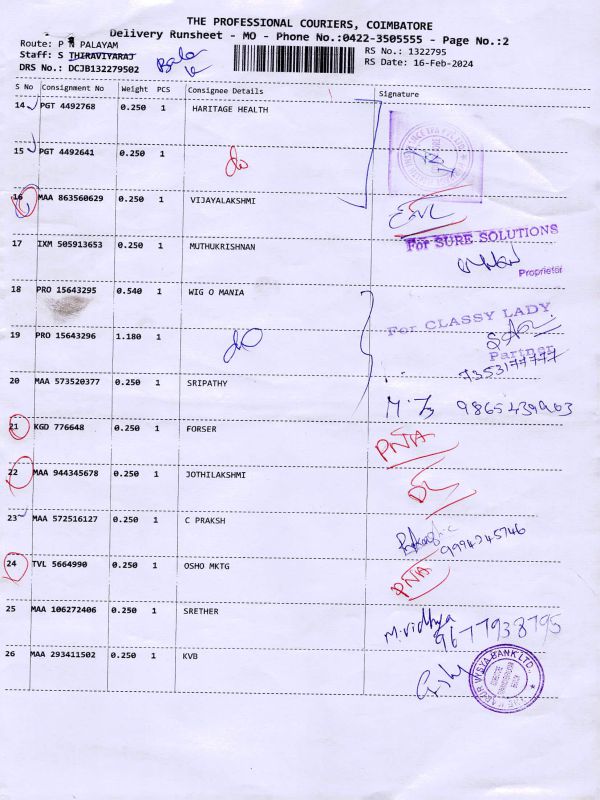 THE PROFESSIONAL COURIERS, COIMBATORE
Delivery Runsheet - MO - Phone No.:0422-3505555 - Page No.:2
Route: P N PALAYAM
Staff: S THIRAVIYARAJ
DRS No.: DCJB132279502
RS No.: 1322795
RS Date: 16-Feb-2024
S No Consignment No Weight PCS Consignee Details Signature
14 PGT 4492768 0.250 1 HARITAGE HEALTH
15 PGT 4492641 0.250 1 do
16 MAA 863560629 0.250 1 VIJAYALAKSHMI
17 IXM 505913653 0.250 1 MUTHUKRISHNAN
For SURE SOLUTIONS
Proprietor
18 PRO 15643295 0.540 1 WIG O MANIA
For CLASSY LADY
19 PRO 15643296 1.180 1 do
Partner
7353177777
20 MAA 573520377 0.250 1 SRIPATHY
9865439963
21 KGD 776648 0.250 1 FORSER PNA
22 MAA 944345678 0.250 1 JOTHILAKSHMI DL
23 MAA 572516127 0.250 1 C PRAKSH
9994245746
24 TVL 5664990 0.250 1 OSHO MKTG PNA
25 MAA 106272406 0.250 1 SRETHER M.vidhya
9677938795
26 MAA 293411502 0.250 1 KVB